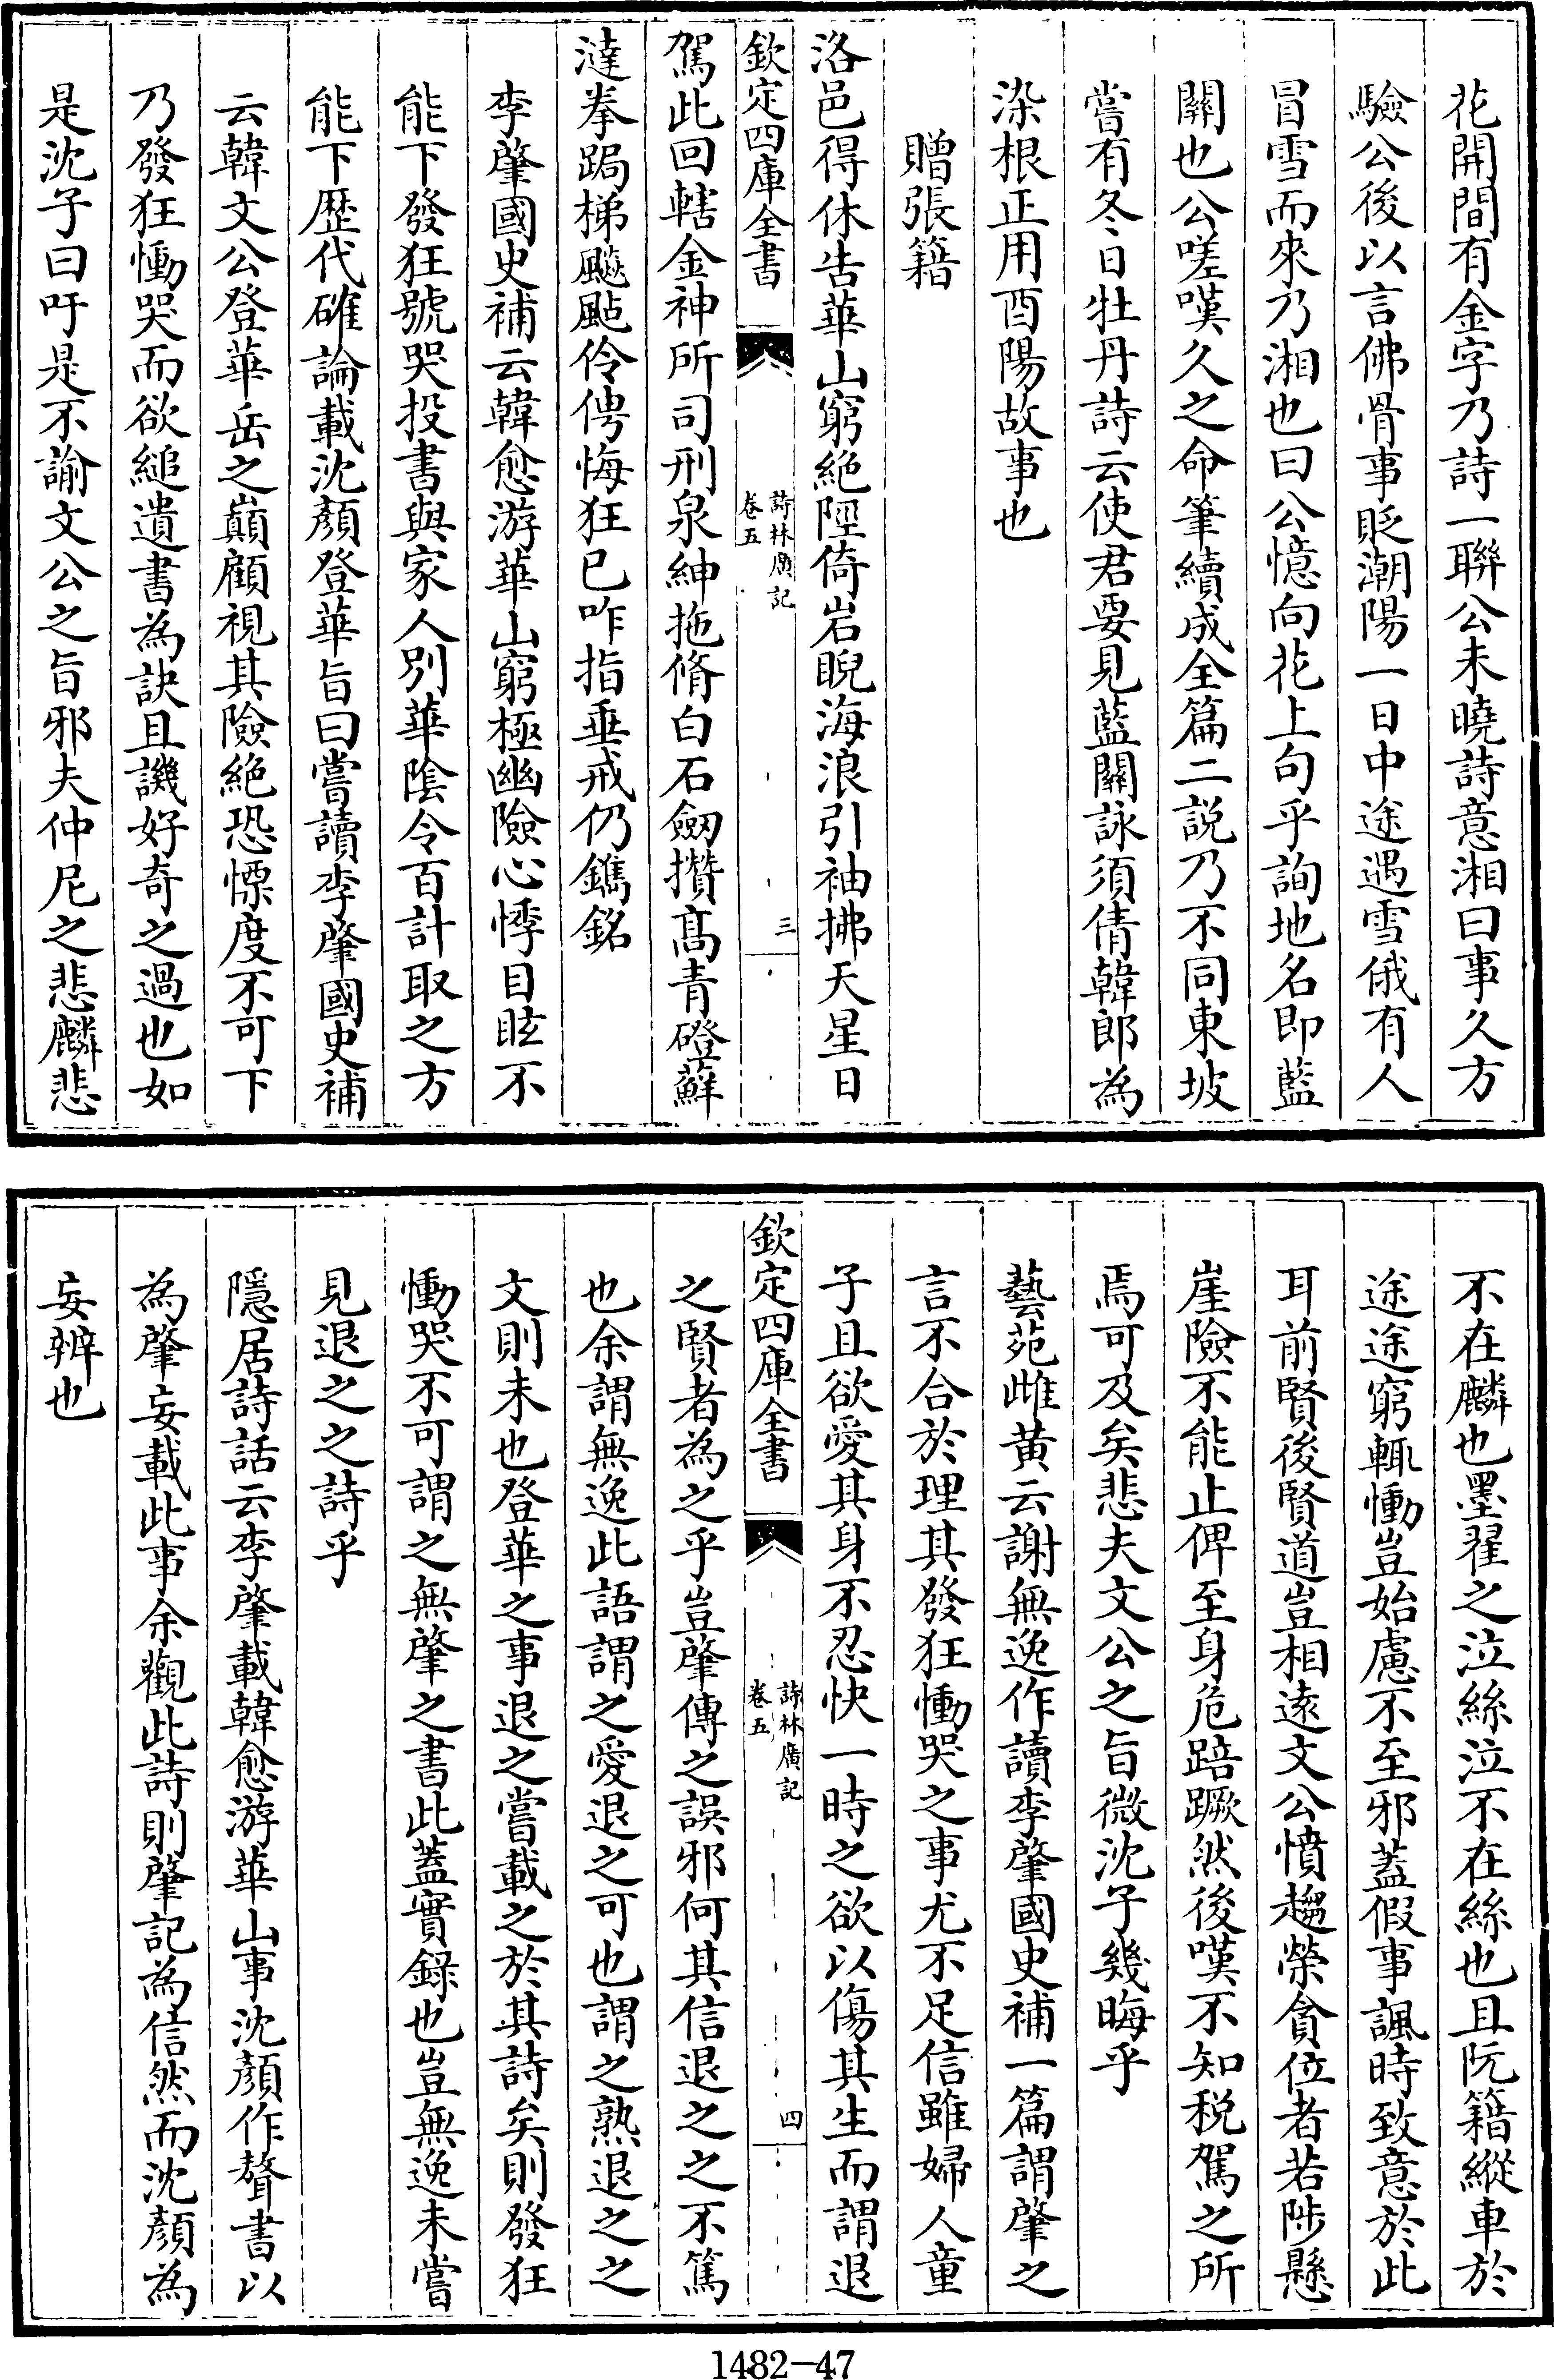 花開間有金字乃詩一聯公未曉詩意湘曰事久方
驗公後以言佛骨事貶潮陽一日中途遇雪俄有人
冒雪而來乃湘也曰公憶向花上句乎詢地名即藍
關也公嗟嘆久之命筆續成全篇二説乃不同東坡
嘗有冬日牡丹詩云使君要見藍關詠須倩韓郎為
染根正用酉陽故事也
贈張籍
洛邑得休告華山窮絶陘倚岩睨海浪引袖拂天星日
欽定四庫全書
詩林廣記
卷五
三
駕此回轄金神所司刑泉紳拖脩白石劒攢髙青磴蘚
澾拳跼梯飈颭伶俜悔狂已咋指垂戒仍鐫銘
李肇國史補云韓愈游華山窮極幽險心悸目眩不
能下發狂號哭投書與家人別華陰令百計取之方
能下歷代確論載沈顏登華旨曰嘗讀李肇國史補
云韓文公登華岳之巔顧視其險絶恐慄度不可下
乃發狂慟哭而欲縋遺書為訣且譏好奇之過也如
是沈子曰吁是不諭文公之旨邪夫仲尼之悲麟悲
不在麟也墨翟之泣絲泣不在絲也且阮籍縱車於
途途窮輒慟豈始慮不至邪蓋假事諷時致意於此
耳前賢後賢道豈相遠文公憤趨榮貪位者若陟懸
崖險不能止俾至身危踣蹶然後嘆不知税駕之所
焉可及矣悲夫文公之旨微沈子幾晦乎
藝苑雌黄云謝無逸作讀李肇國史補一篇謂肇之
言不合於理其發狂慟哭之事尤不足信雖婦人童
子且欲愛其身不忍快一時之欲以傷其生而謂退
欽定四庫全書
詩林廣記
卷五
四
之賢者為之乎豈肇傳之誤邪何其信退之之不篤
也余謂無逸此語謂之愛退之可也謂之熟退之之
文則未也登華之事退之嘗載之於其詩矣則發狂
慟哭不可謂之無肇之書此蓋實錄也豈無逸未嘗
見退之之詩乎
隱居詩話云李肇載韓愈游華山事沈顏作聱書以
為肇妄載此事余觀此詩則肇記為信然而沈顏為
妄辨也
1482-47